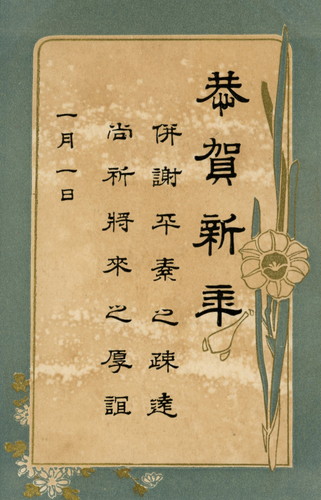 恭賀新年
併謝平素之疎遠
尚祈將來之厚誼
一月一日